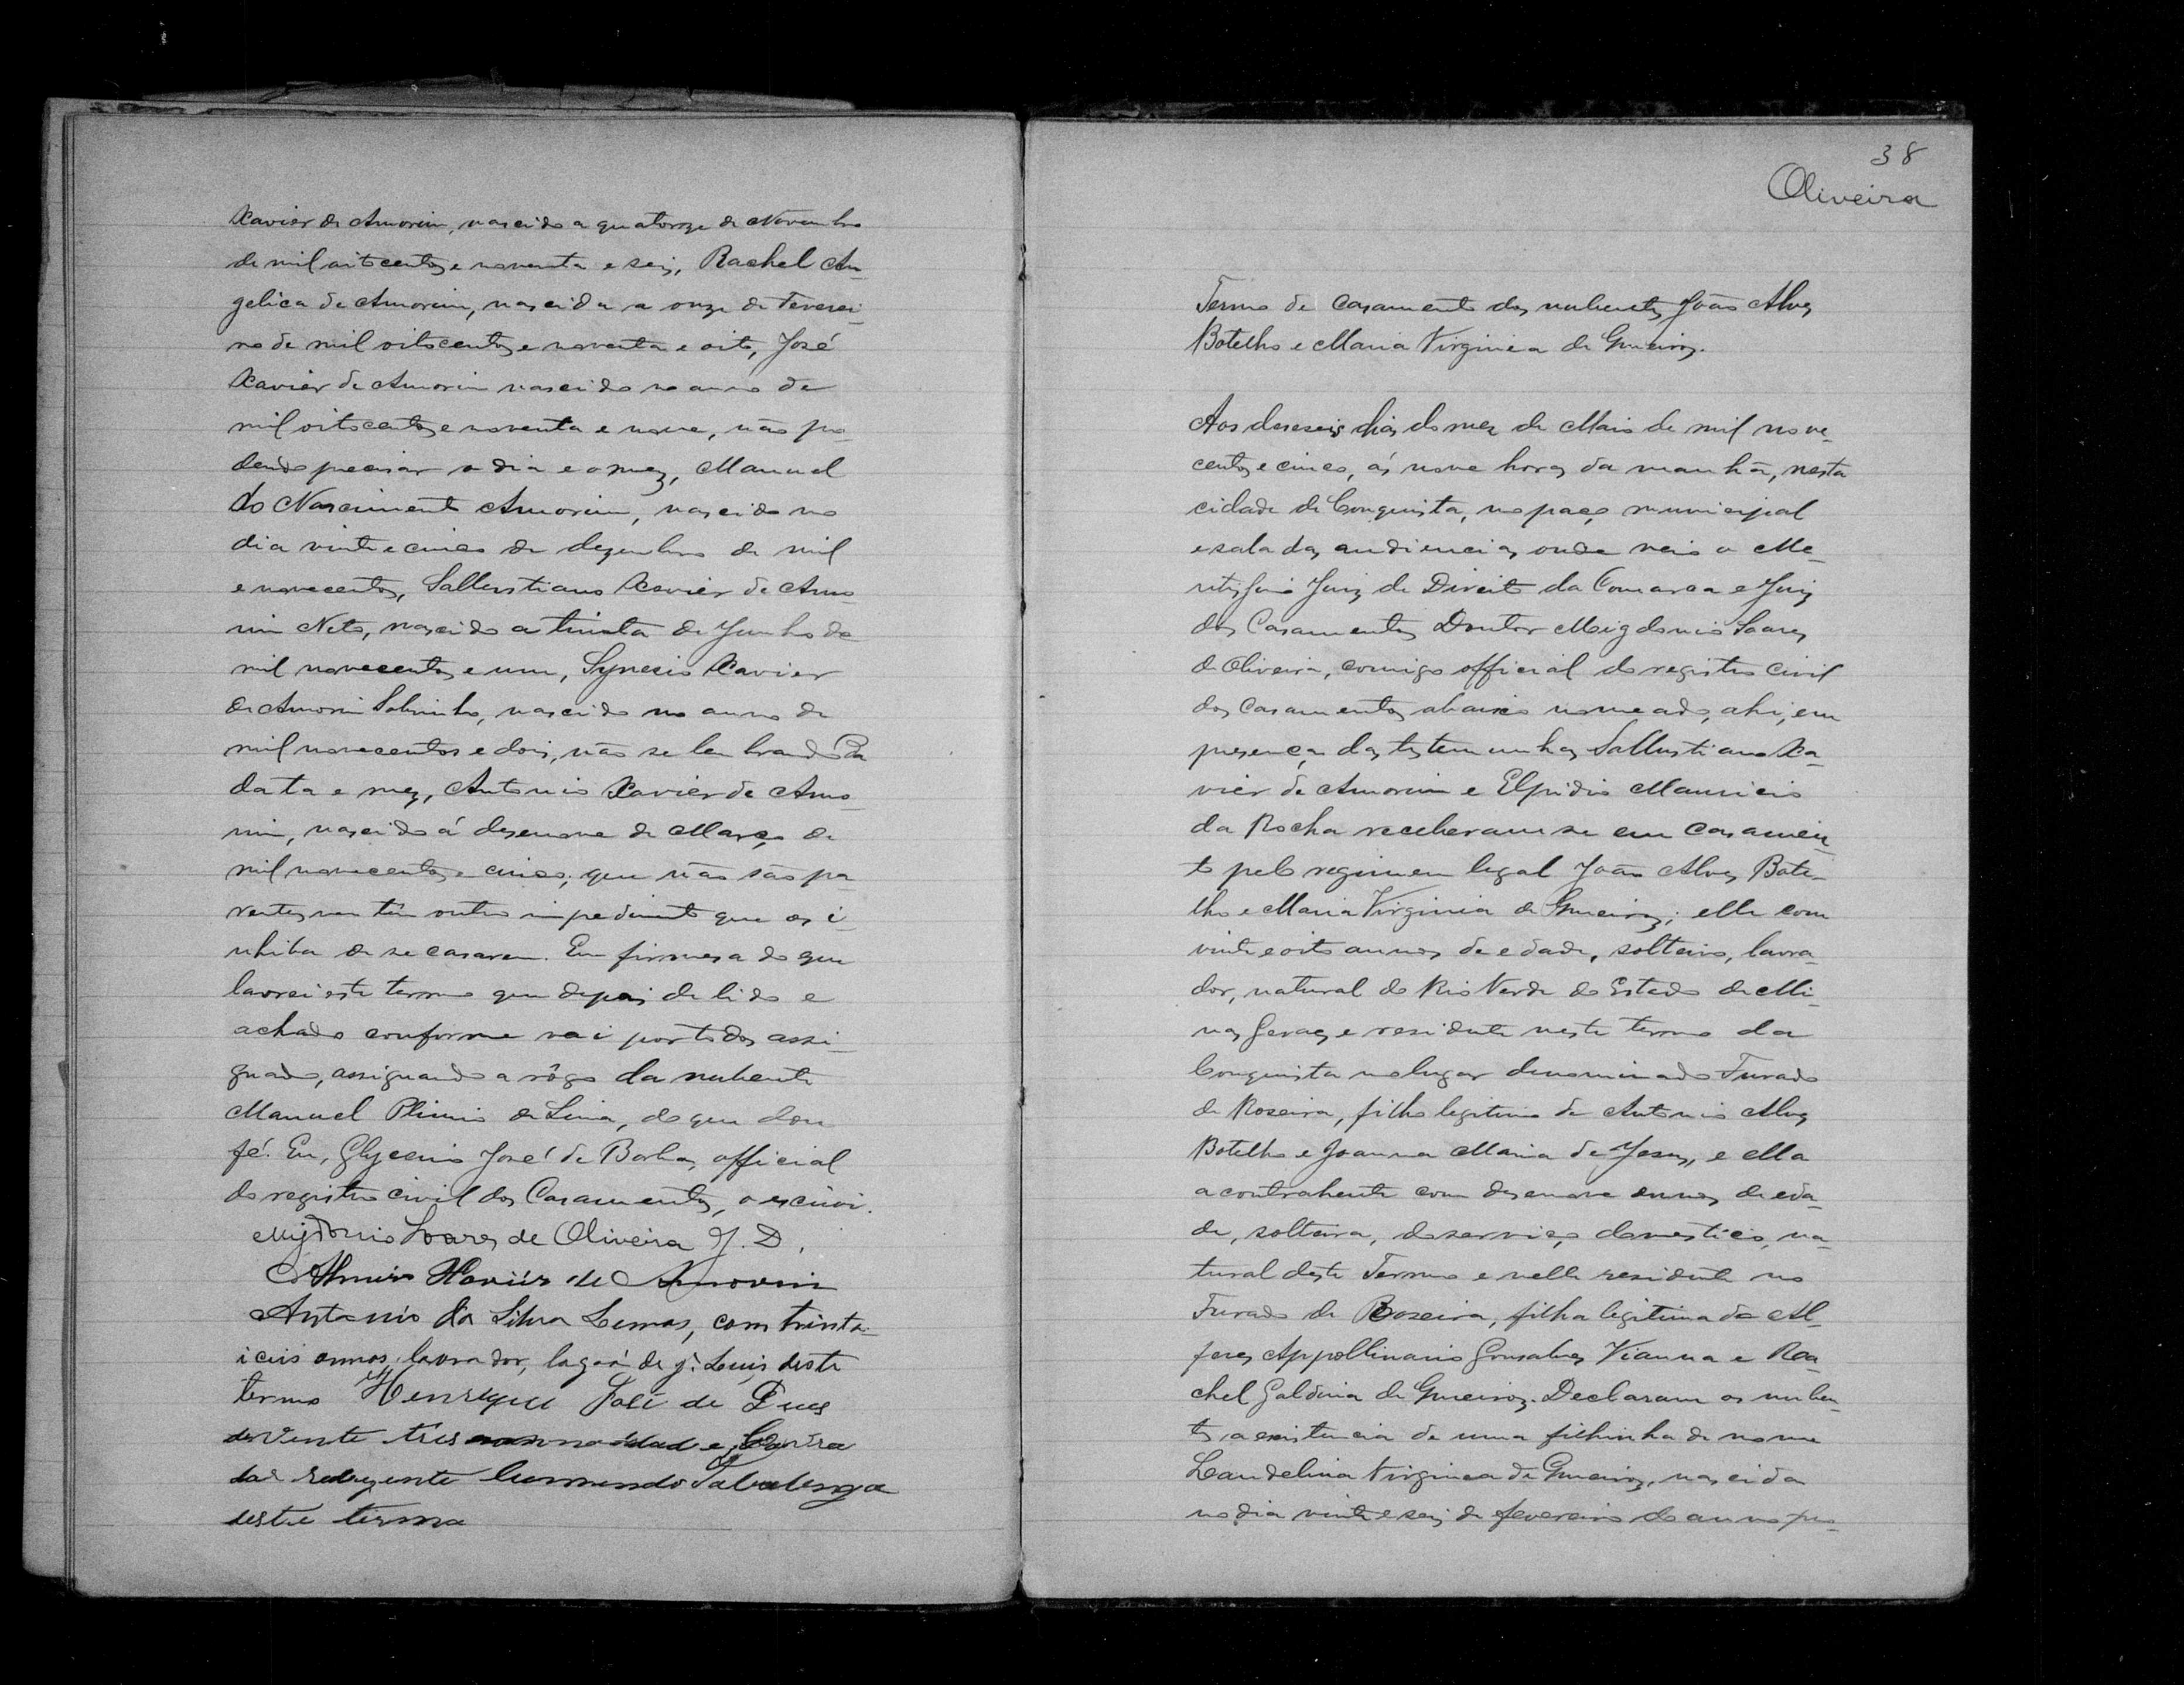 Xavier de Amorim, nascido a quatorze de Novembro
de mil oitocentos e noventa e seis, Rachel An-
gelica de Amorim, nascida a onze de Feverei-
ro de mil oitocentos e noventa e oito, José
Xavier de Amorim nascido no anno de
mil oitocentos e noventa e nove, não po-
dendo precisar o dia e o mez, Manuel
do Nascimento Amorim, nascido no
dia vinte e cinco de dezembro de mil
e novecentos, Sallustiano Xavier de Amo-
rim Neto, nascido a trinta de Junho de
mil novecentos e um, Synesio Xavier
de Amorim Sobrinho, nascido no anno de
mil novecentos e dois, não se lembrando da
data e mez, Antonio Xavier de Amo-
rim, nascido á desenove de Março de
mil novecentos e cinco; que não são pa-
rentes nem têm outro impedimento que os i-
nhiba de se casarem. Em firmesa do que
lavrei este termo que depois de lido e
achado conforme vai por todos assi-
gnado, assignando a rôgo da nubente
Manuel Plinio de Lima, do que dou
fé. Eu, Glycerio José de Borba, official
do registro civil dos Casamentos, o escrivi.
Migdonio Soares de Oliveira J. D.
Xavier de Amorim
Antonio da Silva Lemos, com trinta
annos, lavrador, lagoá de S. Luis deste
termo Henrique José de
vente tres
deste termo
38
Oliveira
Termo de casamento dos nubentes João Alves
Botelho e Maria Virginia de Gueiroz.
Aos deseseis dias do mez de Maio de mil nove-
centos e cinco, ás nove horas da manhã, nesta
cidade de Conquista, no paço municipal
e sala das audiencias, onde veio o Me-
ritissimo Juiz de Direito da Comarca e Juiz
dos Casamentos Doutor Meigdonio Soares
de Oliveira, comigo official do registro civil
dos Casamentos abaixo nomeado, ahi, em
presença das testemunhas Sallustiano Xa-
vier de Amorim e Elpidio Mauricio
da Rocha receberam-se em casamen-
to pelo regimen legal João Alves Bote-
lho e Maria Virginia de Gueiroz; elle com
vinte e oito annos de edade, solteiro, lavra-
dor, natural do Rio Verde do Estado de Mi-
nas Geraes e residente neste termo da
Conquista no lugar denominado Furado
da Roseira, filho legitimo de Antonio Alves
Botelho e Joanna Maria de Jesus, e ella
a contrahente com desenove annos de eda-
de, solteira, do serviço domestico, na-
tural deste Termo e nelle residente no
Furado da Roseira, filha legitima do Al-
feres Appollinario Gonsalves Vianna e Ra-
chel Galdina de Gueiroz. Declaram os nuben-
tes a existencia de uma filhinha de nome
Laudelina Virginea de Gueiroz, nascida
no dia vinte e seis de fevereiro do anno pro-